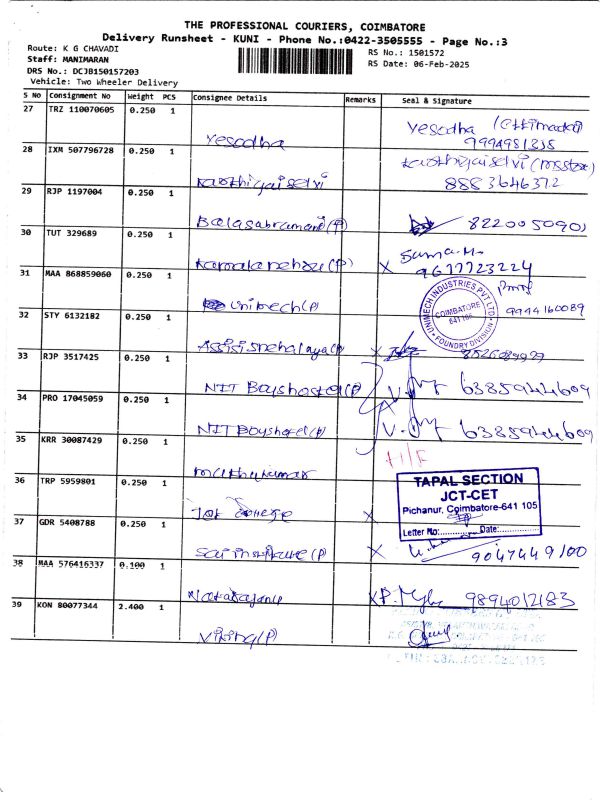 THE PROFESSIONAL COURIERS, COIMBATORE
Delivery Runsheet - KUNI - Phone No.:0422-3505555 - Page No.:3
Route: K G CHAVADI
RS No.: 1501572
Staff: MANIMARAN
RS Date: 06-Feb-2025
DRS No.: DCJB150157203
Vehicle: Two Wheeler Delivery
S No Consignment No Weight PCS Consignee Details Remarks Seal & Signature
27 TRZ 110070605 0.250 1
Yesodha Yesodha
28 IXM 507796728 0.250 1
Karthigaiselvi Karthigaiselvi
29 RJP 1197004 0.250 1
Balasubramani (P) 8220050901
30 TUT 329689 0.250 1
(P) 9677723224
31 MAA 868859060 0.250 1
Unimech (P) 9944160089
UNIMECH INDUSTRIES PVT LTD
COIMBATORE
641105
FOUNDRY DIVISION
32 STY 6132182 0.250 1
Assisi snehalaya (P)
33 RJP 3517425 0.250 1
NIT Boys hostel (P) 6385944609
34 PRO 17045059 0.250 1
NIT Boys hotel (P) 6385944609
35 KRR 30087429 0.250 1
Muthukumar
36 TRP 5959801 0.250 1
TAPAL SECTION
JCT-CET
Pichanur, Coimbatore-641 105
Letter No:............Date:............
37 GDR 5408788 0.250 1
Sai institute (P) 9047449100
38 MAA 576416337 0.100 1
9894012183
39 KON 80077344 2.400 1
Viking (P)